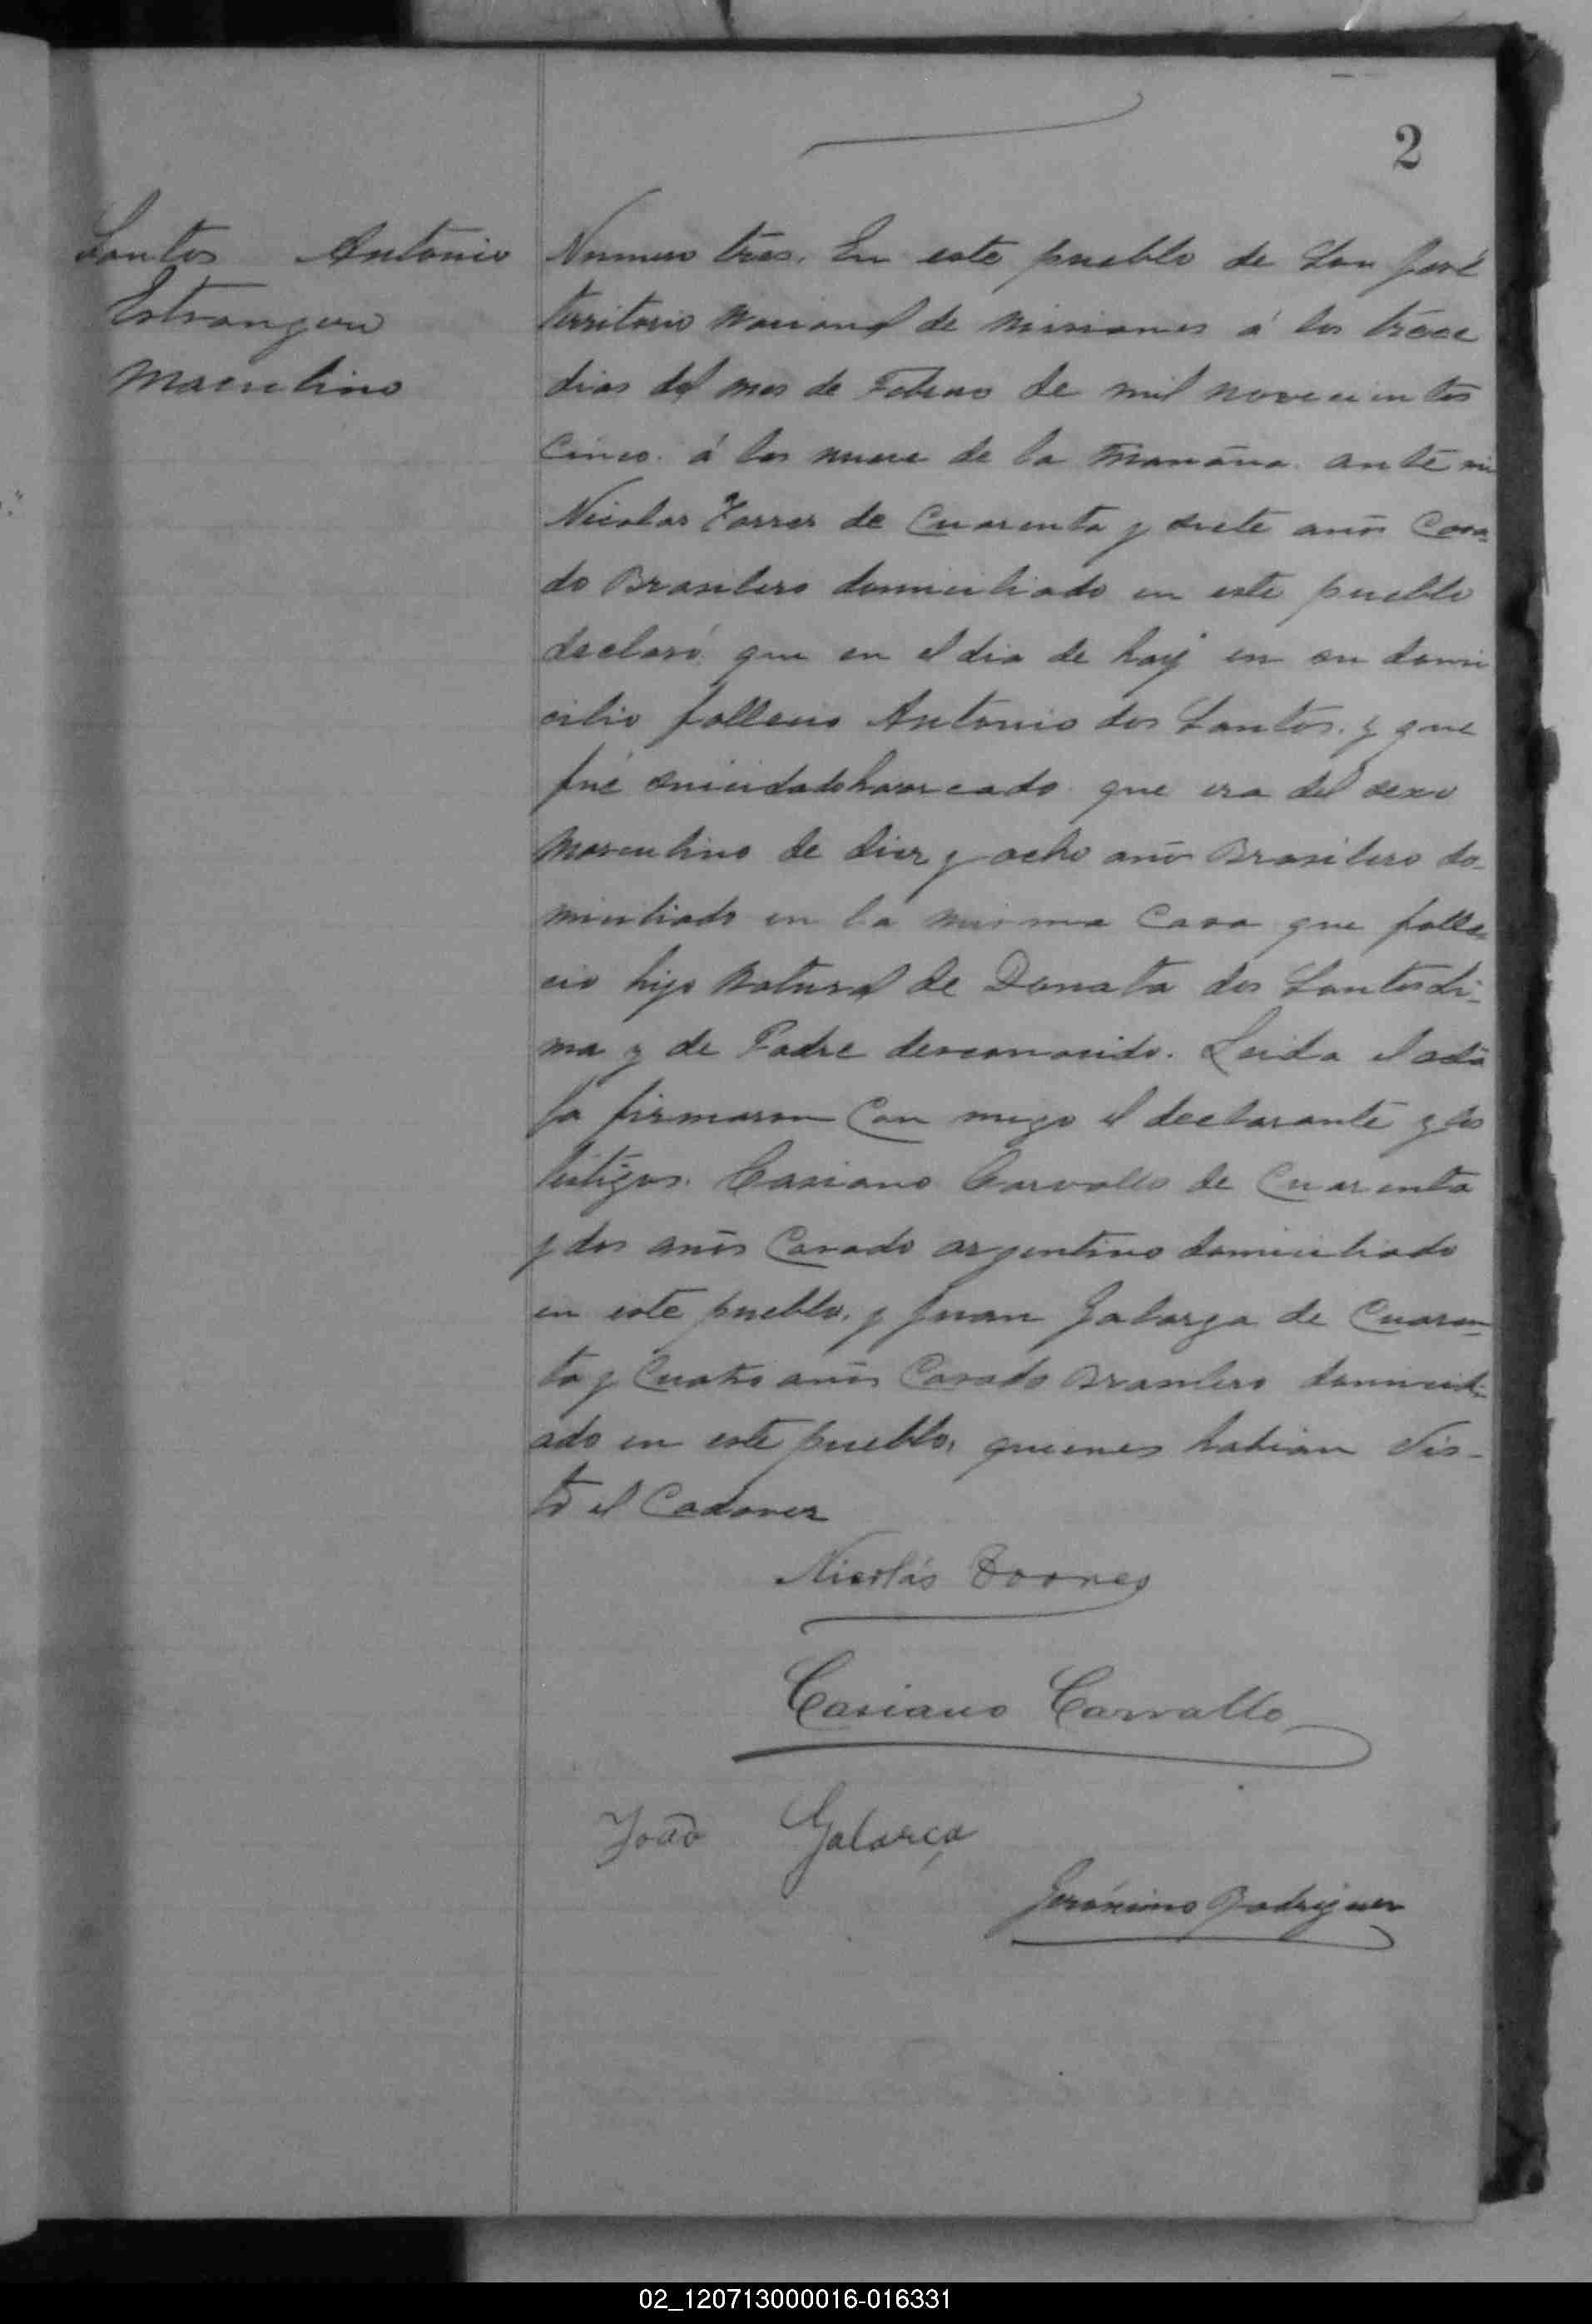 2
Santos Antonio
Estrangero
Masculino
Numero tres. En este pueblo de San José
territorio Nacional de Misiones á los trece
dias del mes de Febrero de mil novecientos
Cinco. á las nueve de la Mañana. ante mi
Nicolas Torres de Cuarenta y siete años Casa-
do Brasilero domiciliado en este pueblo
declaró que en el dia de hoy en su domi
cilio fallecio Antonio dos Santos. y que
fué suicidado horcado que era del sexo
Masculino de diez y ocho años Brasilero do-
miciliado en la misma Casa que falle-
cio hijo Natural de Donata dos Santos Li-
ma y de Padre desconocido. Leida el acta
la firmaron Con migo el declarante y los
testigos. Casiano Carvallo de Cuarenta
y dos años Casado argentino domiciliado
en este pueblo, y Juan Galarza de Cuaren-
ta y Cuatro años Casado Brasilero domicili-
ado en este pueblo, quienes habian Vis-
to el Cadaver
Nicolás Torres
Casiano Carvallo
João Galarça
Jerónimo Rodriguez
02_120713000016-016331